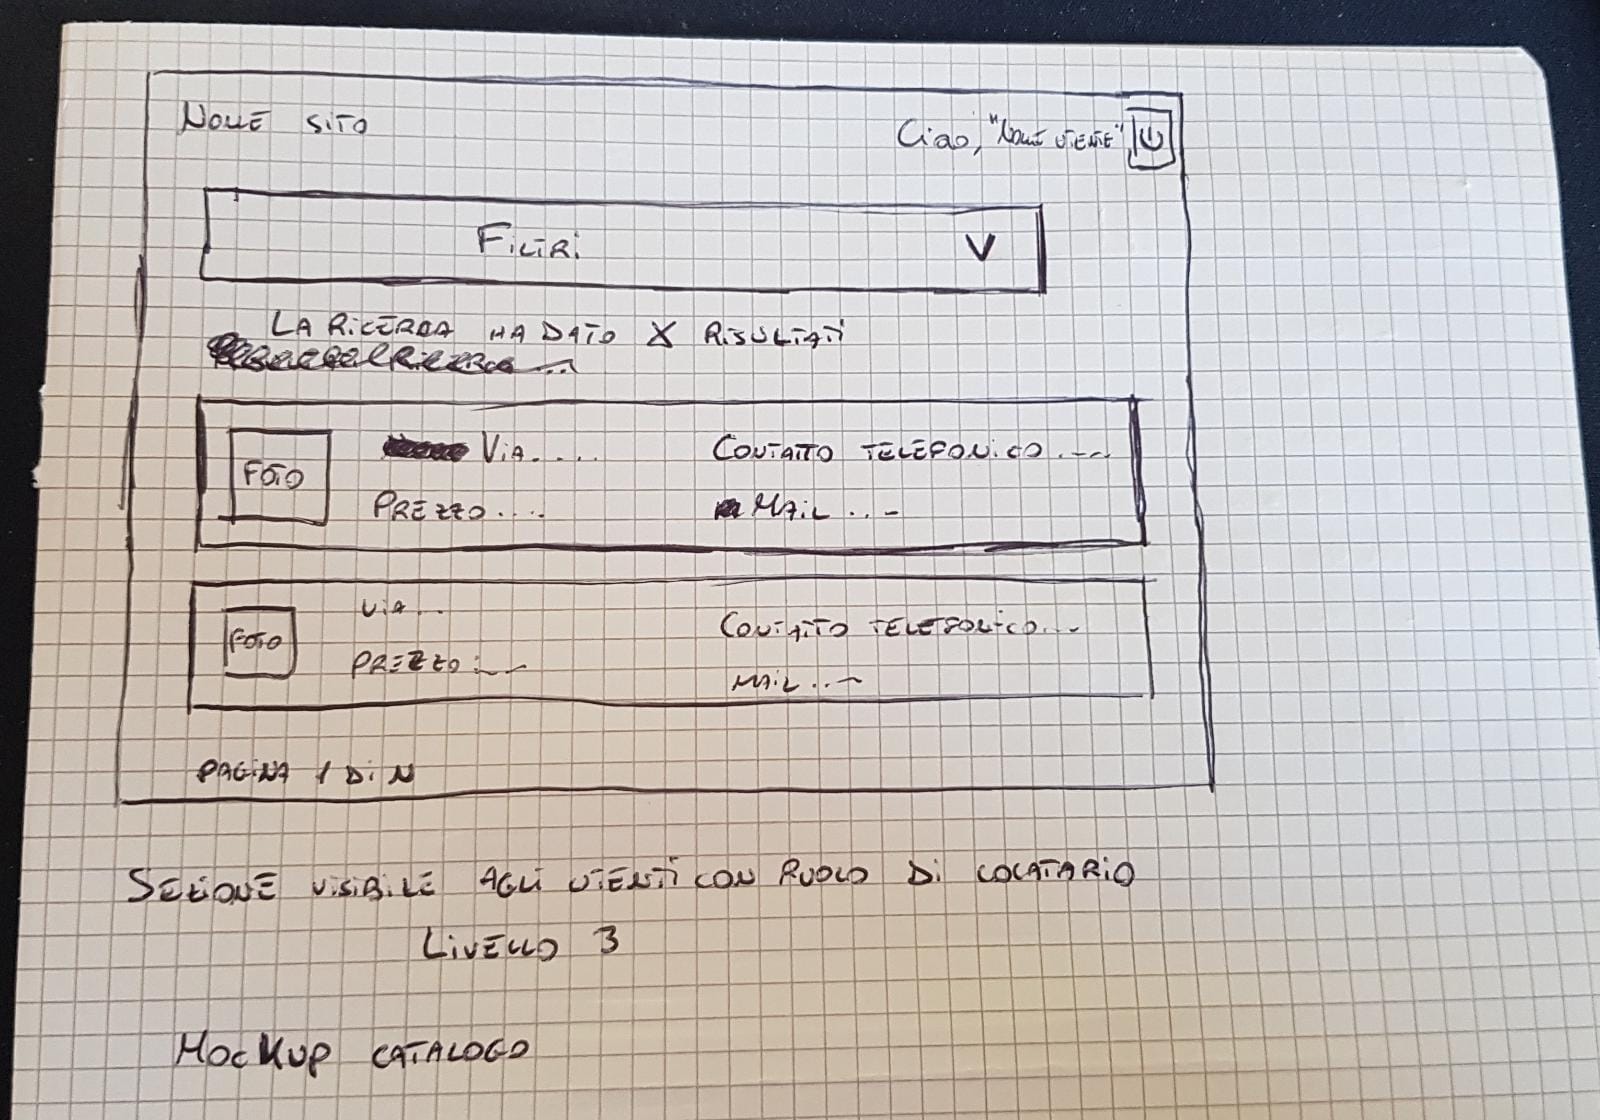 NOME SITO
Ciao, "NOME UTENTE"
FILTRI V
LA RICERCA HA DATO X RISULTATI
FOTO
VIA.... CONTATTO TELEFONICO...
PREZZO.... MAIL...
FOTO
VIA... CONTATTO TELEFONICO...
PREZZO... MAIL...
PAGINA 1 DI N
SEZIONE VISIBILE AGLI UTENTI CON RUOLO DI LOCATARIO
LIVELLO 3
MOCKUP CATALOGO